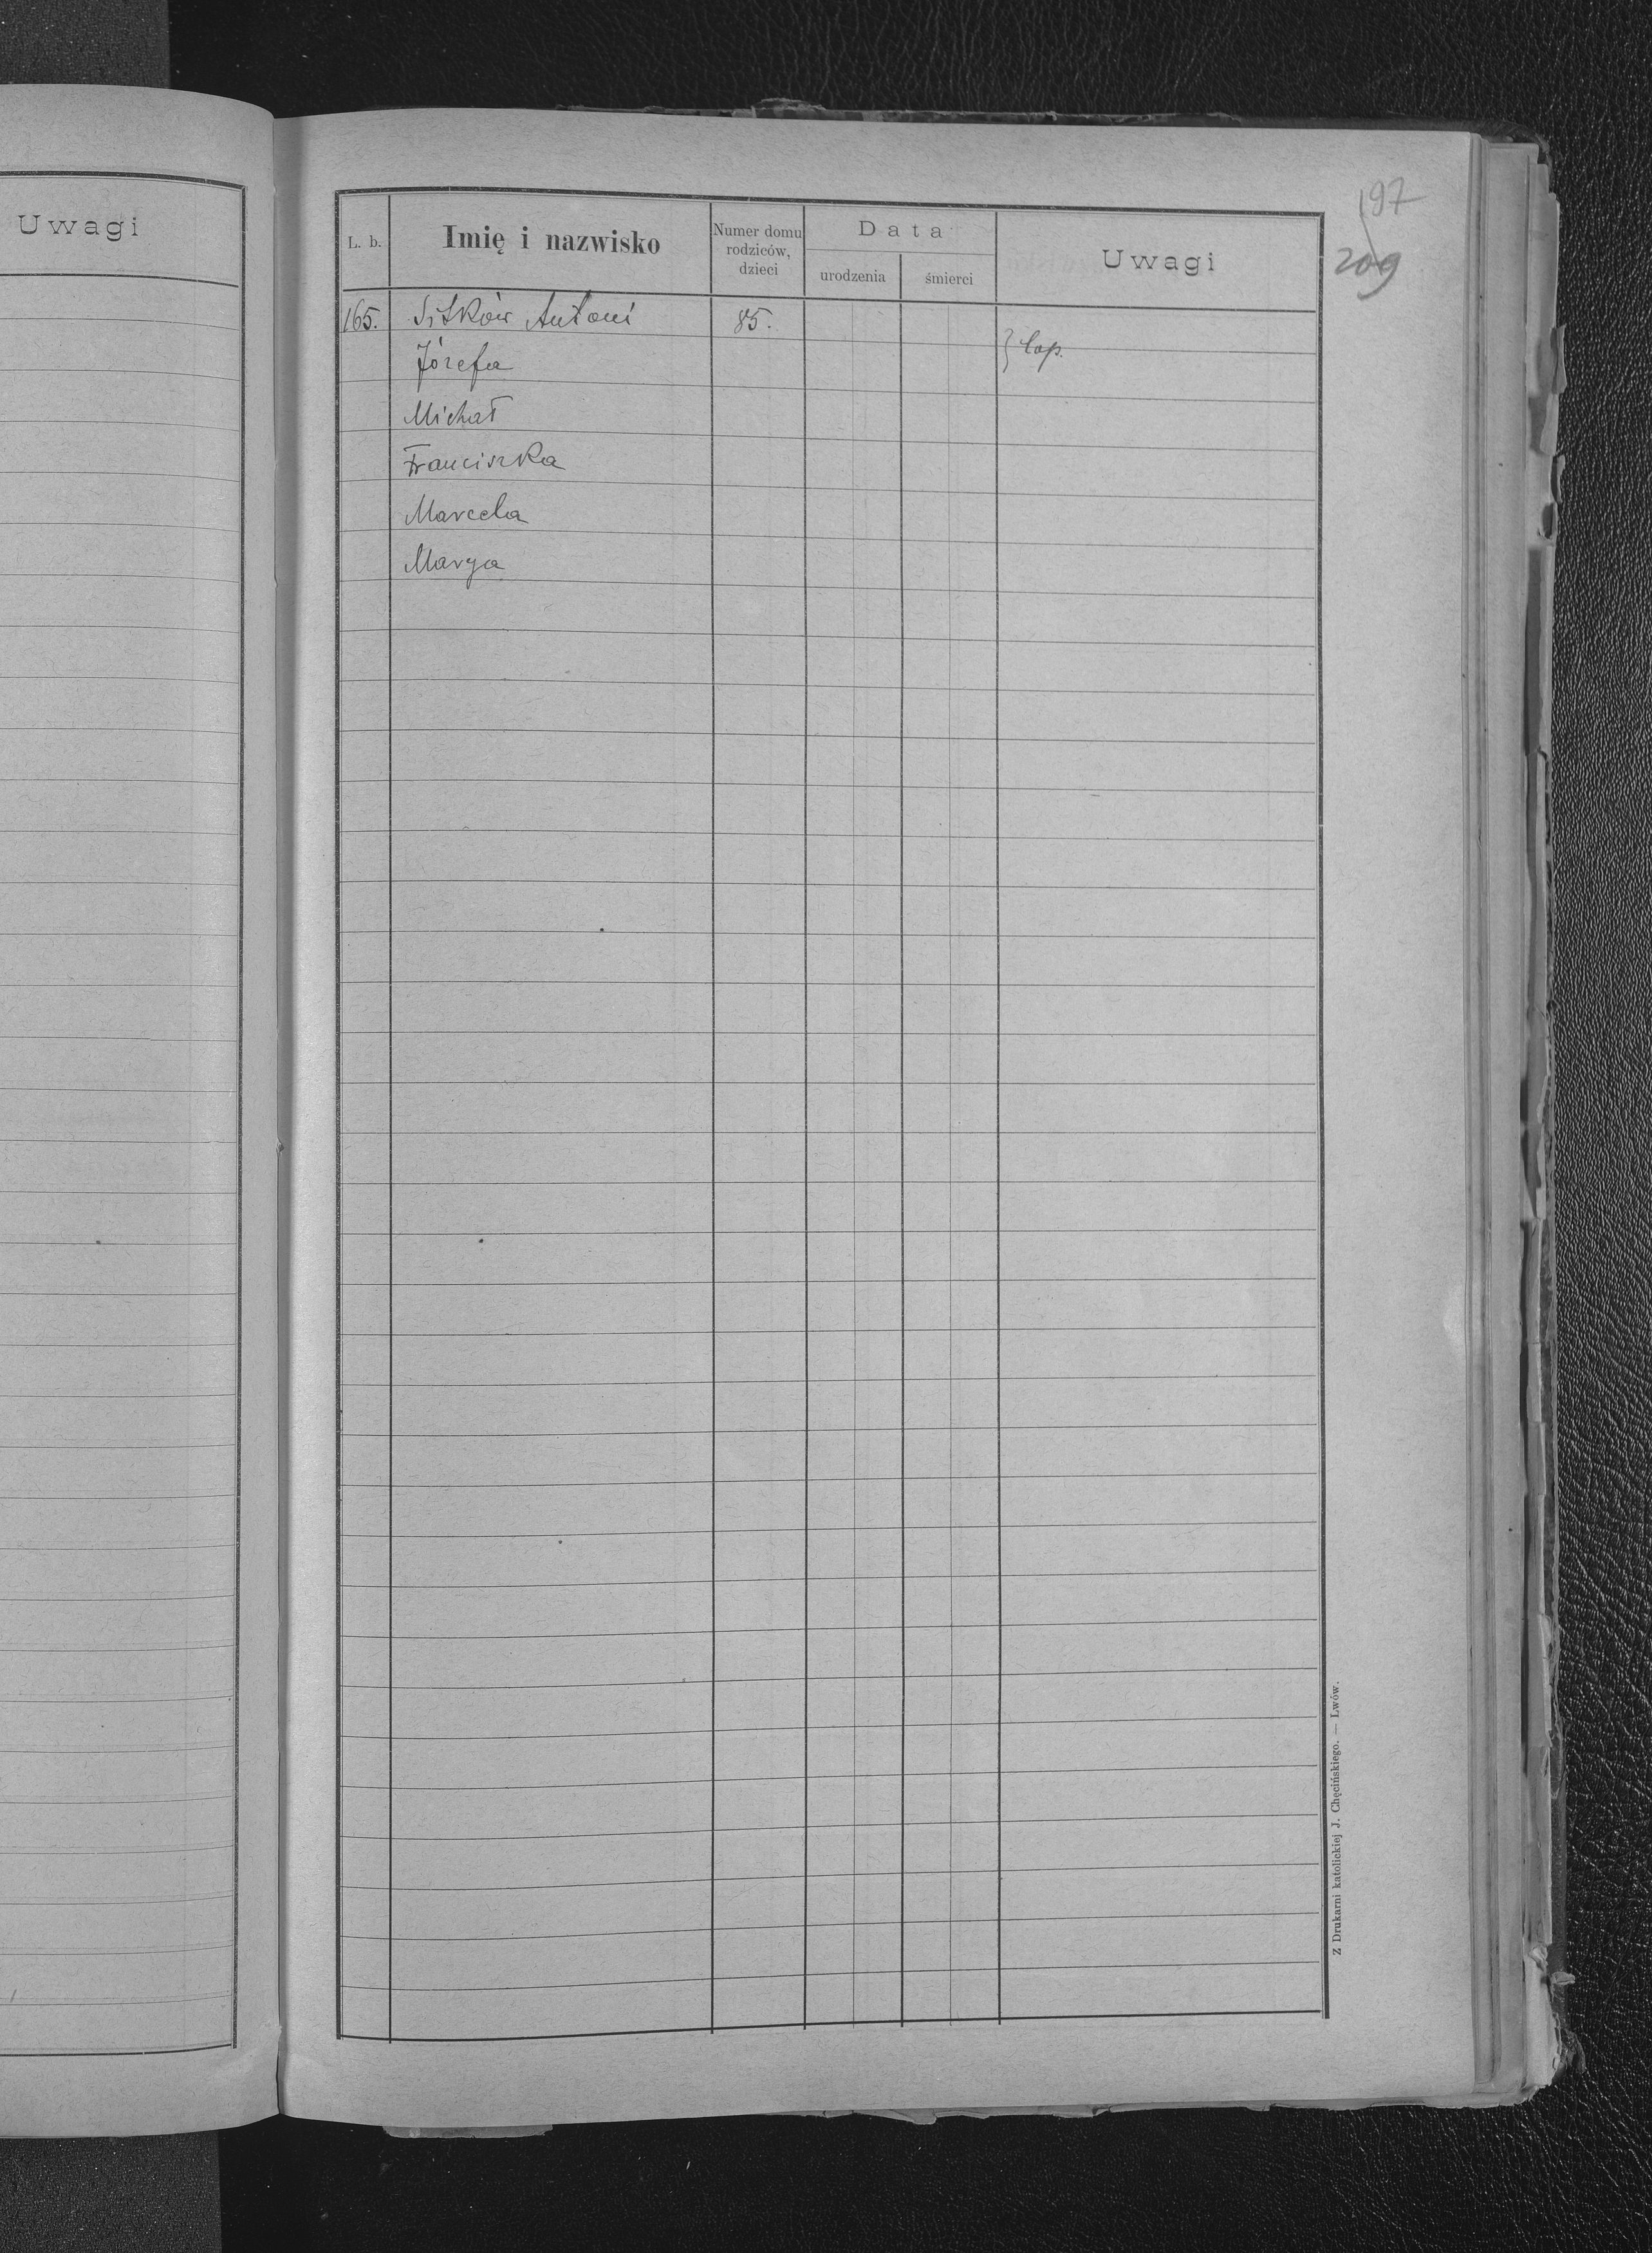 Uwagi
197
209
L. b.
Imię i nazwisko
Numer domu rodziców, dzieci
Data
urodzenia
śmierci
Uwagi
165. Sitków Antoni 85.
} cop.
Józefa
Michał
Franciszka
Marcela
Marya
Z Drukarni katolickiej J. Chęcińskiego. — Lwów.